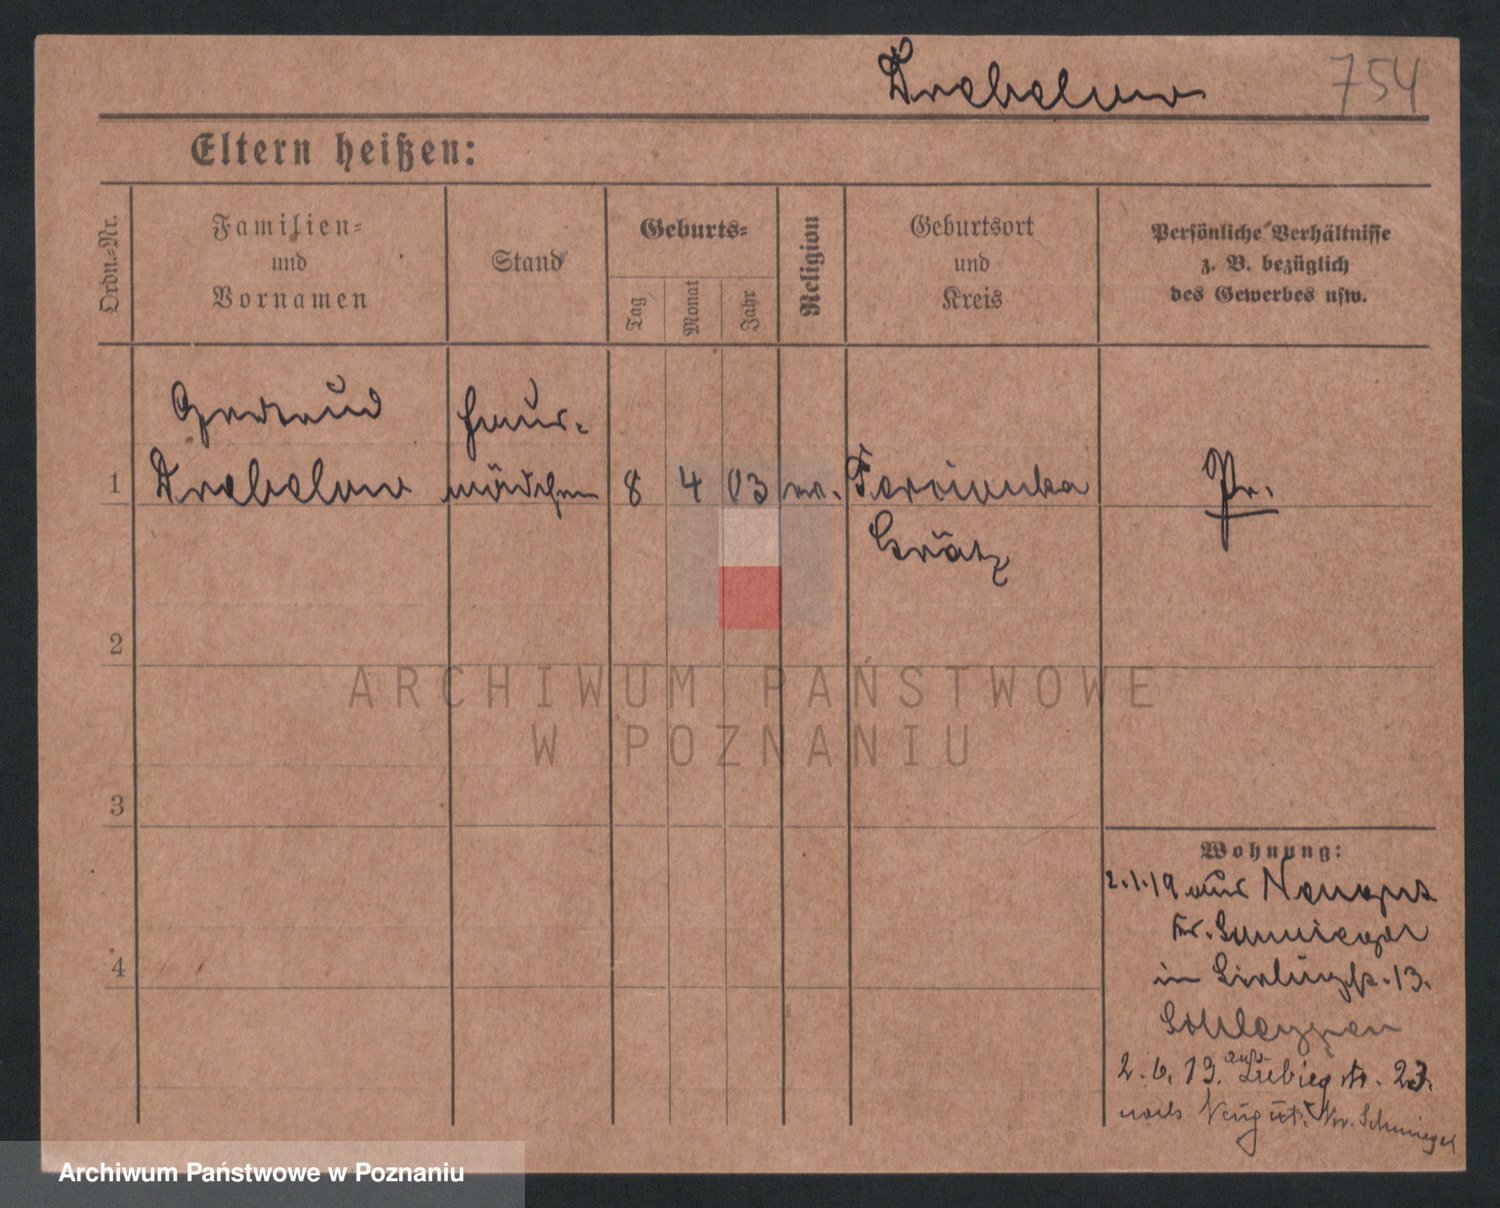 Drabelow 754
Eltern heißen:
Ordn.-Nr.
Familien-
und
Vornamen
Stand
Geburts-
Tag
Monat
Jahr
Religion
Geburtsort
und
Kreis
Persönliche Verhältnisse
z. B. bezüglich
des Gewerbes usw.
Gertrud Haus-
1 Drebelow mädchen 8 4 03 ev. Terionka Pr.
Grätz
2
3
4
ARCHIWUM PAŃSTWOWE
W POZNANIU
Wohnung:
2.1.19 aus Neugut
Kr. Schmiegel
in 13.
2.6.19. aus Liebigstr. 23.
nach Neugut, Kr. Schmiegel
Archiwum Państwowe w Poznaniu